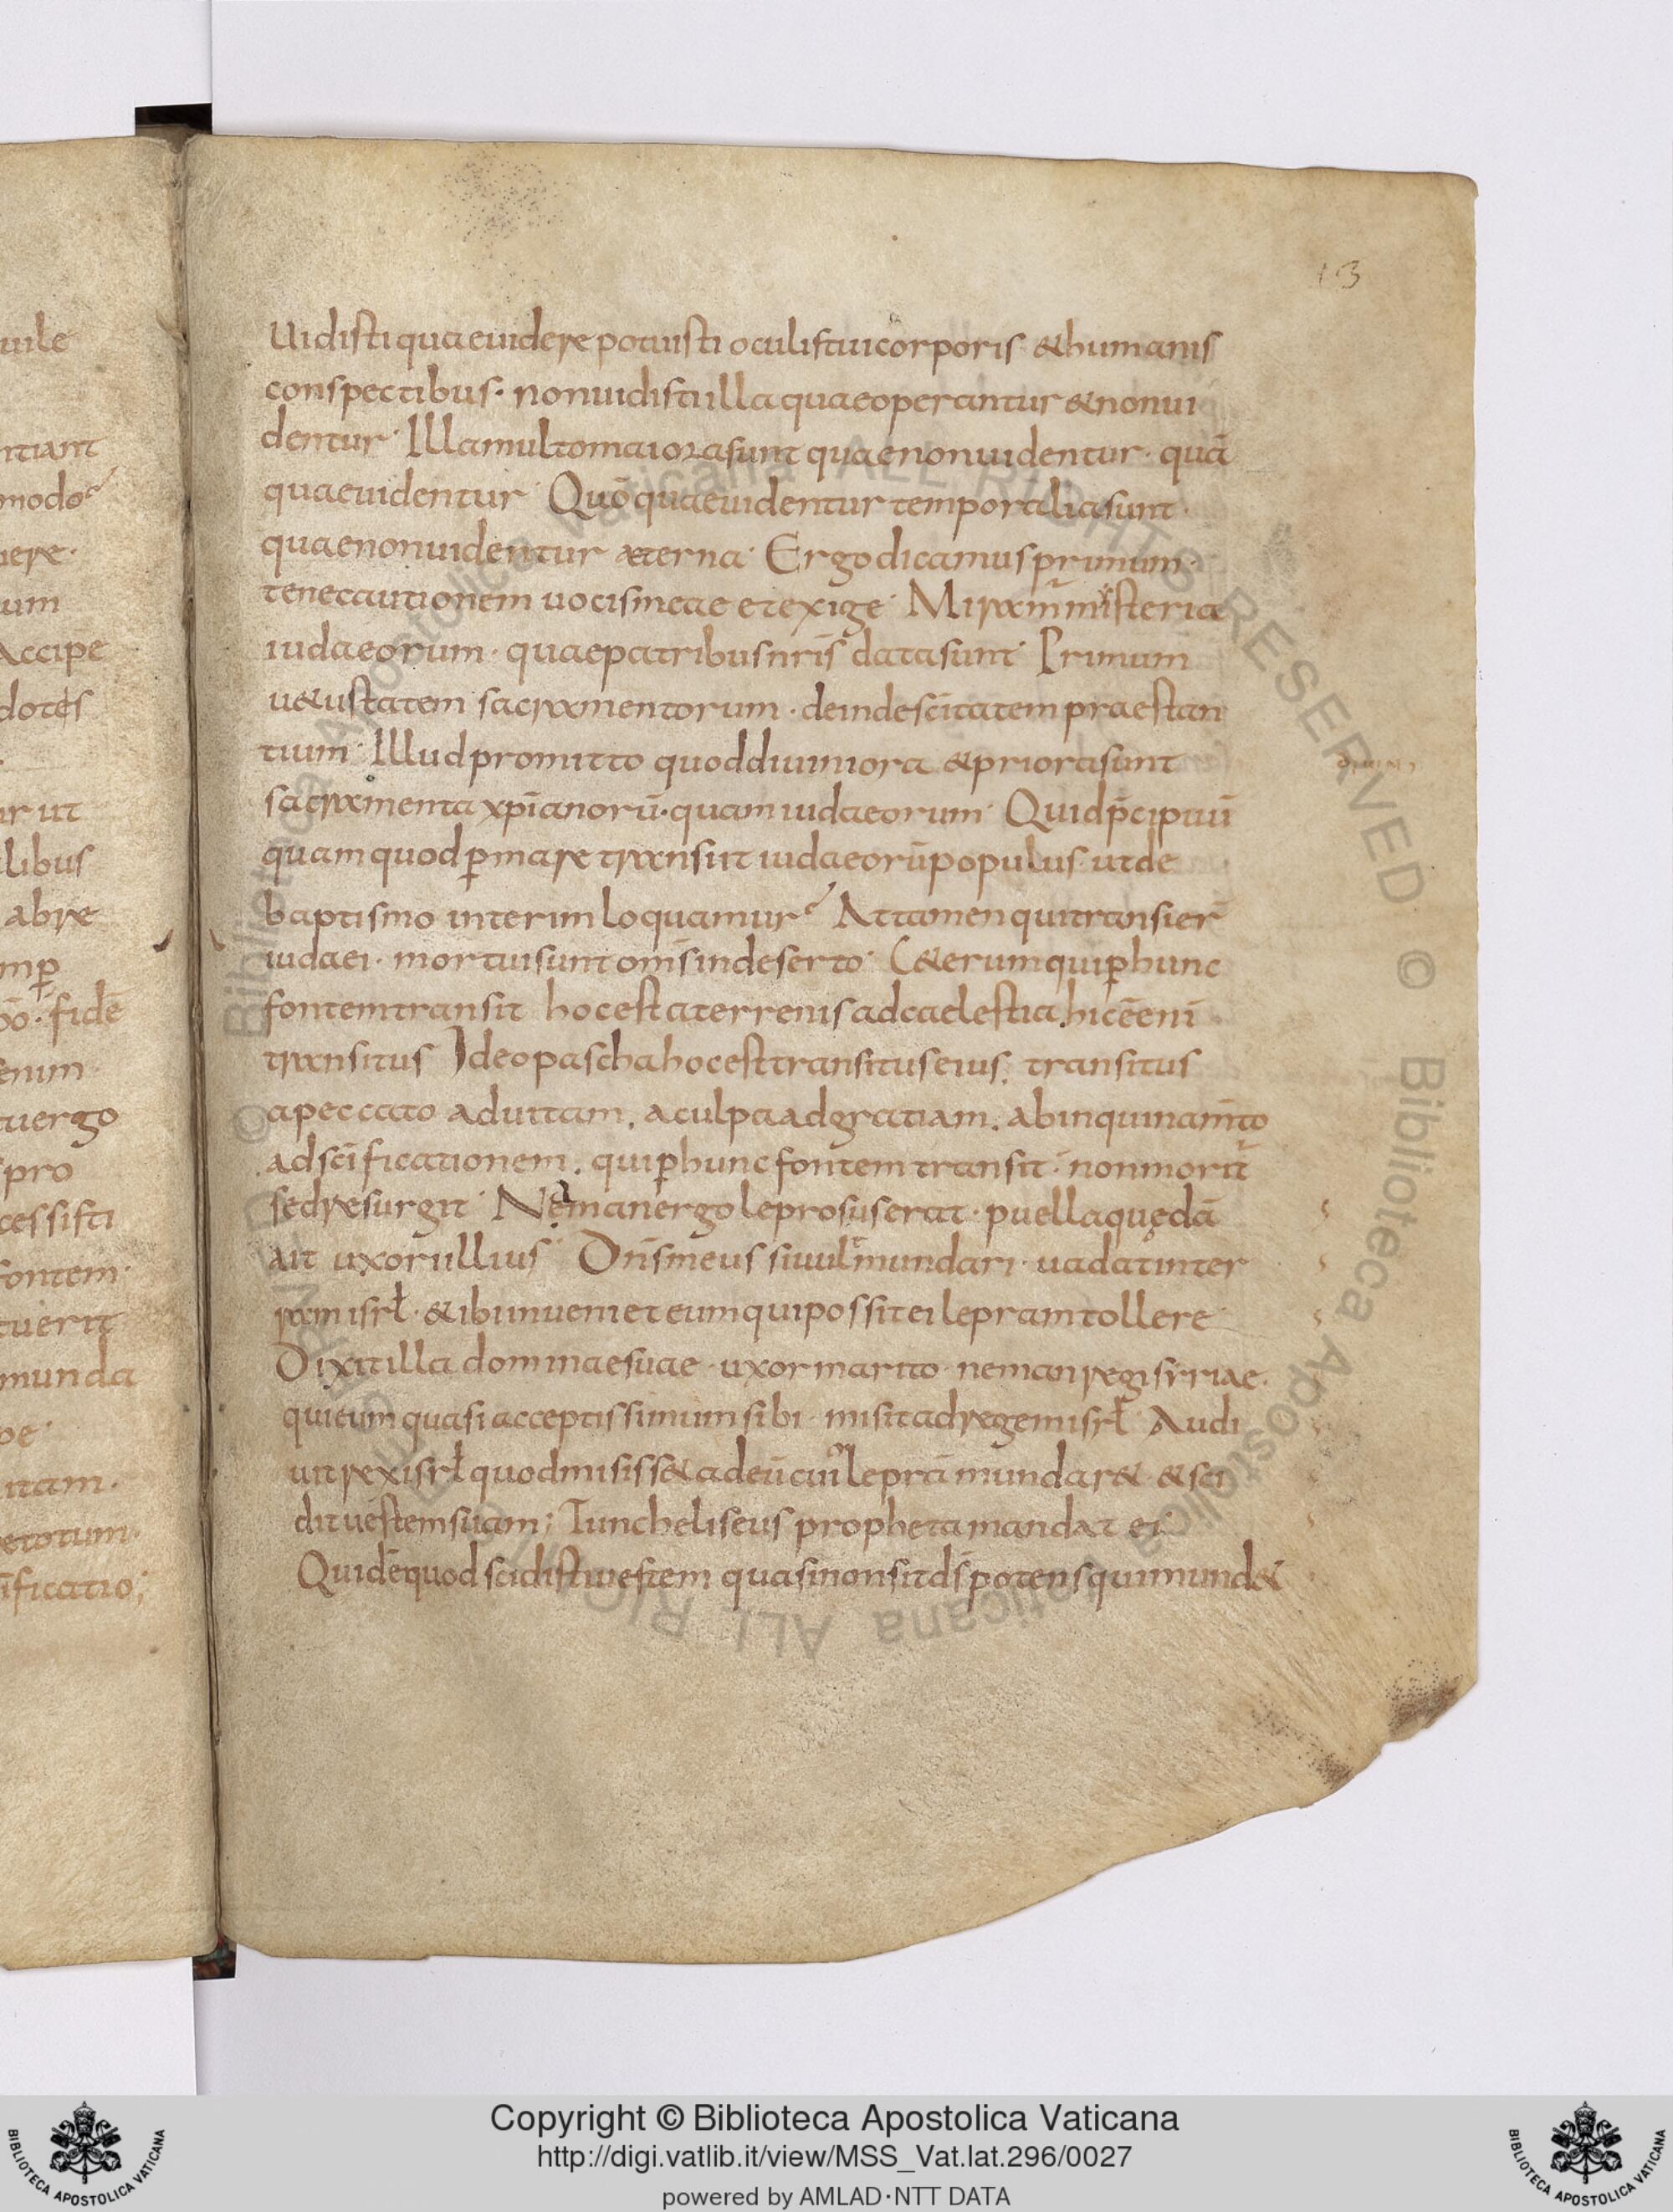 13
uile
ntiant
modo
uere·
um
Accipe
dotes
ar ut
libus
abre
mp̱
fidē
enim
uergo
pro
cessisti
fontem·
tuerit
munda
itam·
etotum·
ificatio;
Uidisti quae uidere potuisti oculis tui corporis & humanis
conspectibus· non uidisti illa quae operantur & non ui
dentur· Illa multo maiora sunt quae non uidentur· quā
quae uidentur· Quō quae uidentur temporalia sunt·
quae non uidentur aeterna· Ergo dicamus primum·
tene cautionem uocis meae et exige· Miramur mysteria
iudaeorum· quae patribus nr̄is data sunt· Primum
u&ustatem sacramentorum· deinde sc̄itatem praestan
tium· Illud promitto quod diuiniora & priora sunt
sacramenta xp̄ianorū· quam iudaeorum· Quid p̄cipuū
quam quod ꝑ mare transiit iudaeorū populus· ut de
baptismo interim loquamur Attamen qui transier̄
iudaei· mortui sunt om̄s in deserto· C&erum qui ꝑ hunc
fontem transit hoc est a terrenis ad caelestia, hic ē eni
transitus Ideo pascha hoc est transitus eius, transitus
a peccato ad uitam, a culpa ad gratiam, ab inquinam̄to
ad sc̄ificationem, qui ꝑ hunc fontem transit· non morit̄
sed resurgit· Neman ergo leprosus erat· puella quędā
ait uxori illius· Dn̄s meus si uult mundari· uadat in ter
ram isrł· & ibi inueniet eum qui possit ei lepram tollere·
Dixit illa dominae suae· uxor marito· neman regi syriae·
qui eum quasi acceptissimum sibi· misit ad regem isrł Audi
uit rex isrł quod misiss& ad eū cui leprā mundar&· & sci
dit uestem suam; Tunc heliseus propheta mandat ei
Quid ē quod scidisti uestem quasi non sit ds̄ potens qui mund&
Copyright © Biblioteca Apostolica Vaticana
http://digi.vatlib.it/view/MSS_Vat.lat.296/0027
powered by AMLAD·NTT DATA
BIBLIOTECA APOSTOLICA VATICANA
BIBLIOTECA APOSTOLICA VATICANA